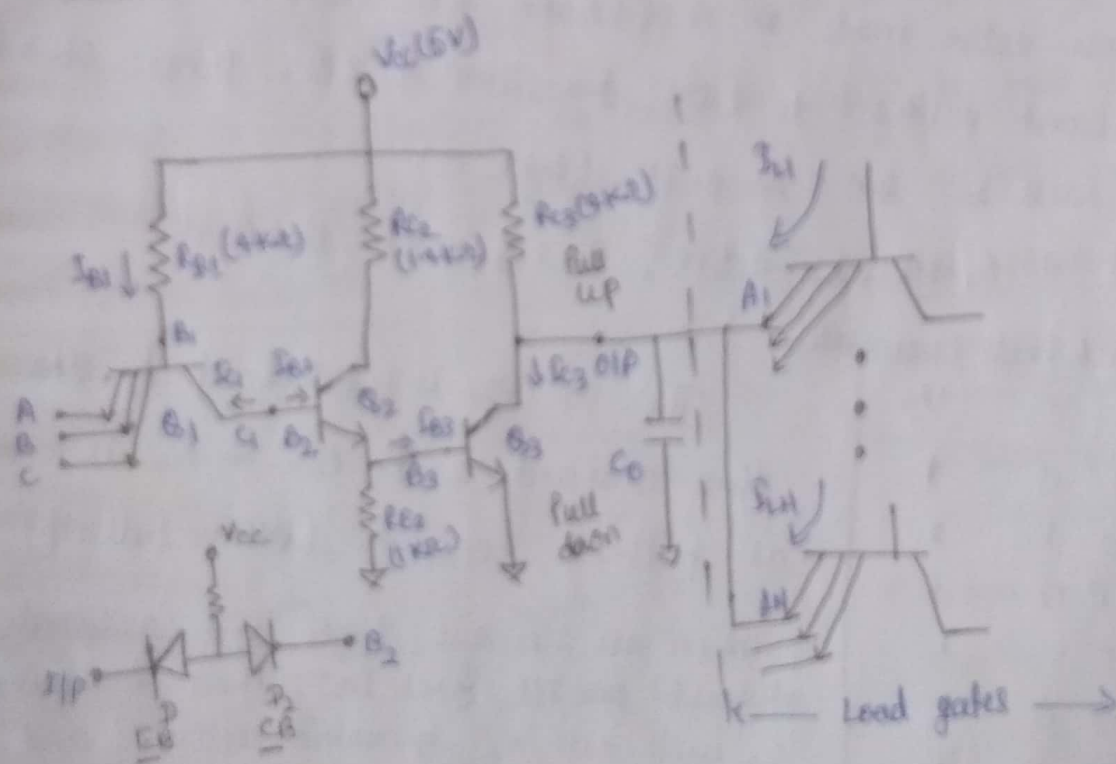 Vcc(5V)
RB1 (4KΩ)
RC2
(1.4KΩ)
RC3(4KΩ)
IB1 ↓
Pull
up
IL1
A1
B1
IC1
IB2
↓ IC3 O/P
A
B
C
Q1
C1
B2
Q2
IB3
B3
Q3
C0
RE2
(1KΩ)
Pull
down
ILN
AN
Vcc
I/P
B2
D
EB
D2
CB
Load gates